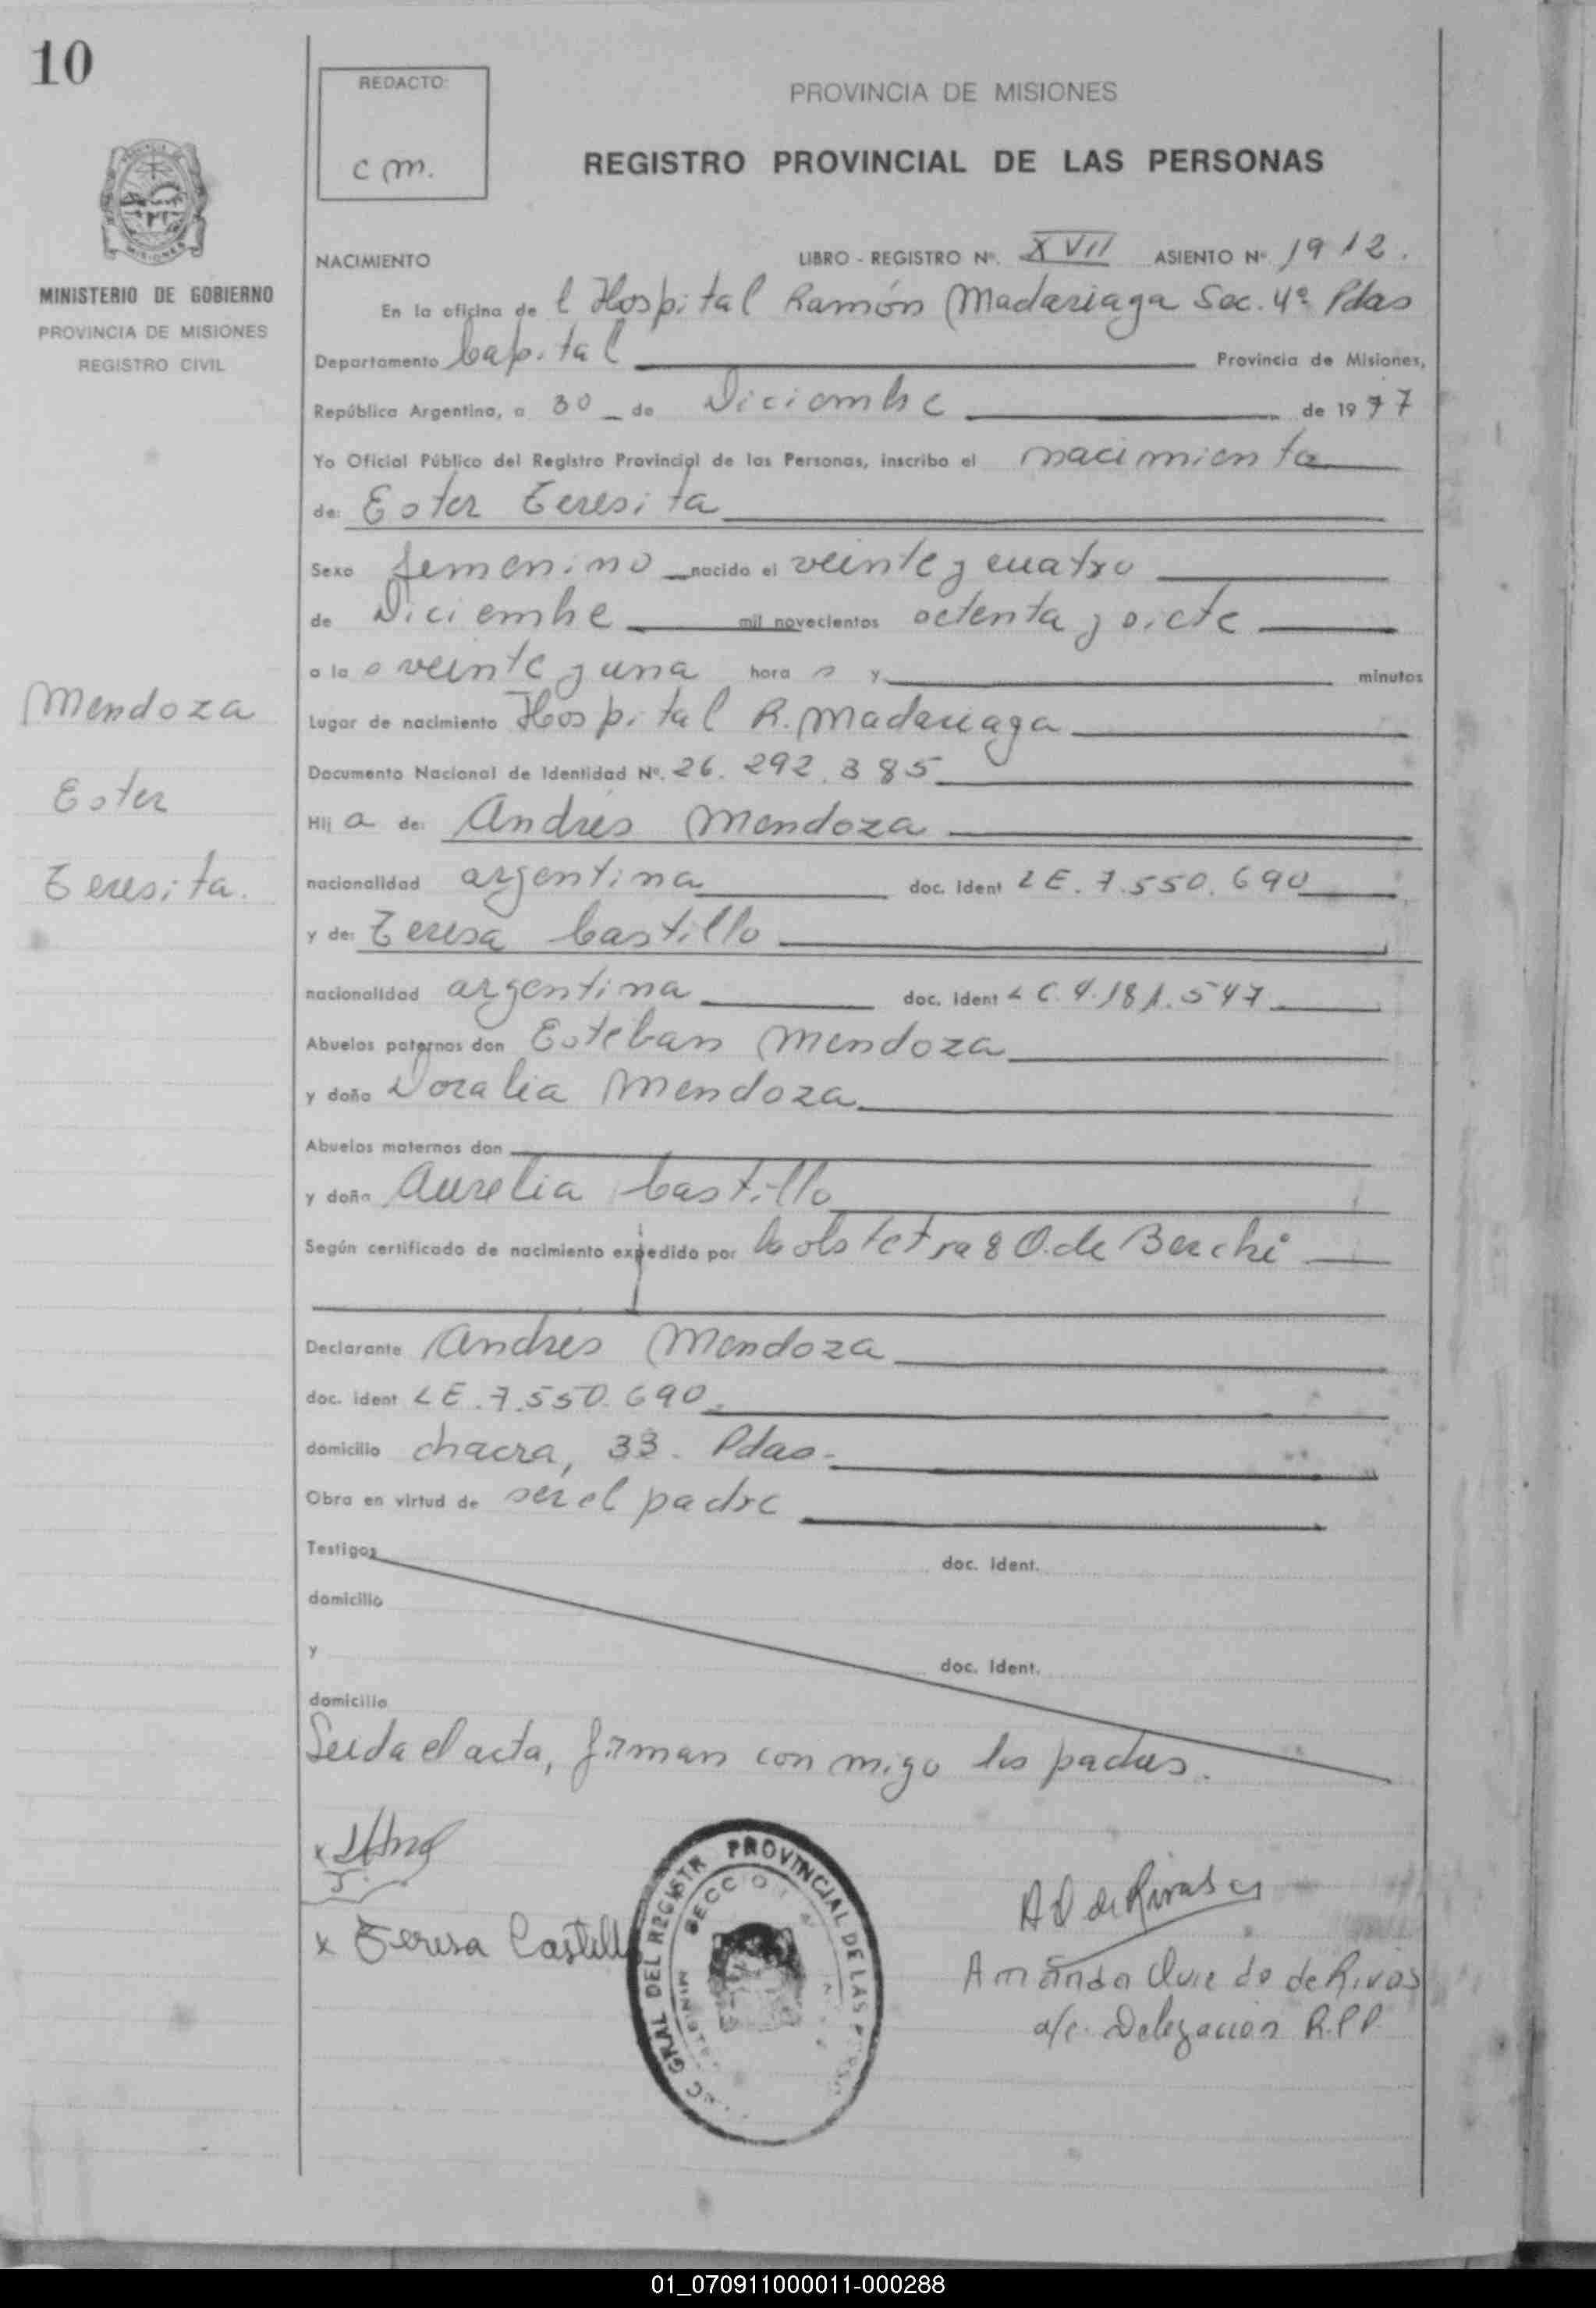 10
REDACTO:
c m.
PROVINCIA DE MISIONES
REGISTRO PROVINCIAL DE LAS PERSONAS
MINISTERIO DE GOBIERNO
PROVINCIA DE MISIONES
REGISTRO CIVIL
NACIMIENTO LIBRO - REGISTRO Nº. XVII ASIENTO Nº. 1912.
En la oficina de l Hospital Ramón Madariaga Sec. 4ª Pdas
Departamento Capital Provincia de Misiones,
República Argentina, a 30 de Diciembre de 1977
Yo Oficial Público del Registro Provincial de las Personas, inscribo el nacimiento
de: Ester Teresita
Sexo femenino nacido el veinte y cuatro
de Diciembre mil novecientos octenta y siete
a la s veinte y una hora s y minutos
Mendoza
Ester
Teresita.
Lugar de nacimiento Hospital R. Madariaga
Documento Nacional de Identidad Nº. 26.292.385
Hij a de: Andrés Mendoza
nacionalidad argentina doc. ident LE. 7.550.690
y de: Teresa Castillo
nacionalidad argentina doc. ident LC. 4.181.547
Abuelos paternos don Esteban Mendoza
y doña Doralia Mendoza
Abuelos maternos don
y doña Aurelia Castillo
Según certificado de nacimiento expedido por la obstetra O. de
Declarante Andrés Mendoza
doc. ident LE. 7.550.690.
domicilio chacra, 33. Pdas.
Obra en virtud de ser el padre
Testigos doc. Ident.
domicilio
y doc. Ident.
domicilio
Leida el acta, firman con migo los padres.
x
x Teresa Castillo
GRAL DEL REGISTR PROVINCIAL DE LAS
SECCIO
A O de Rivas
Amanda Oviedo de Rivas
a/c. Delegación R.P.P.
01_070911000011-000288